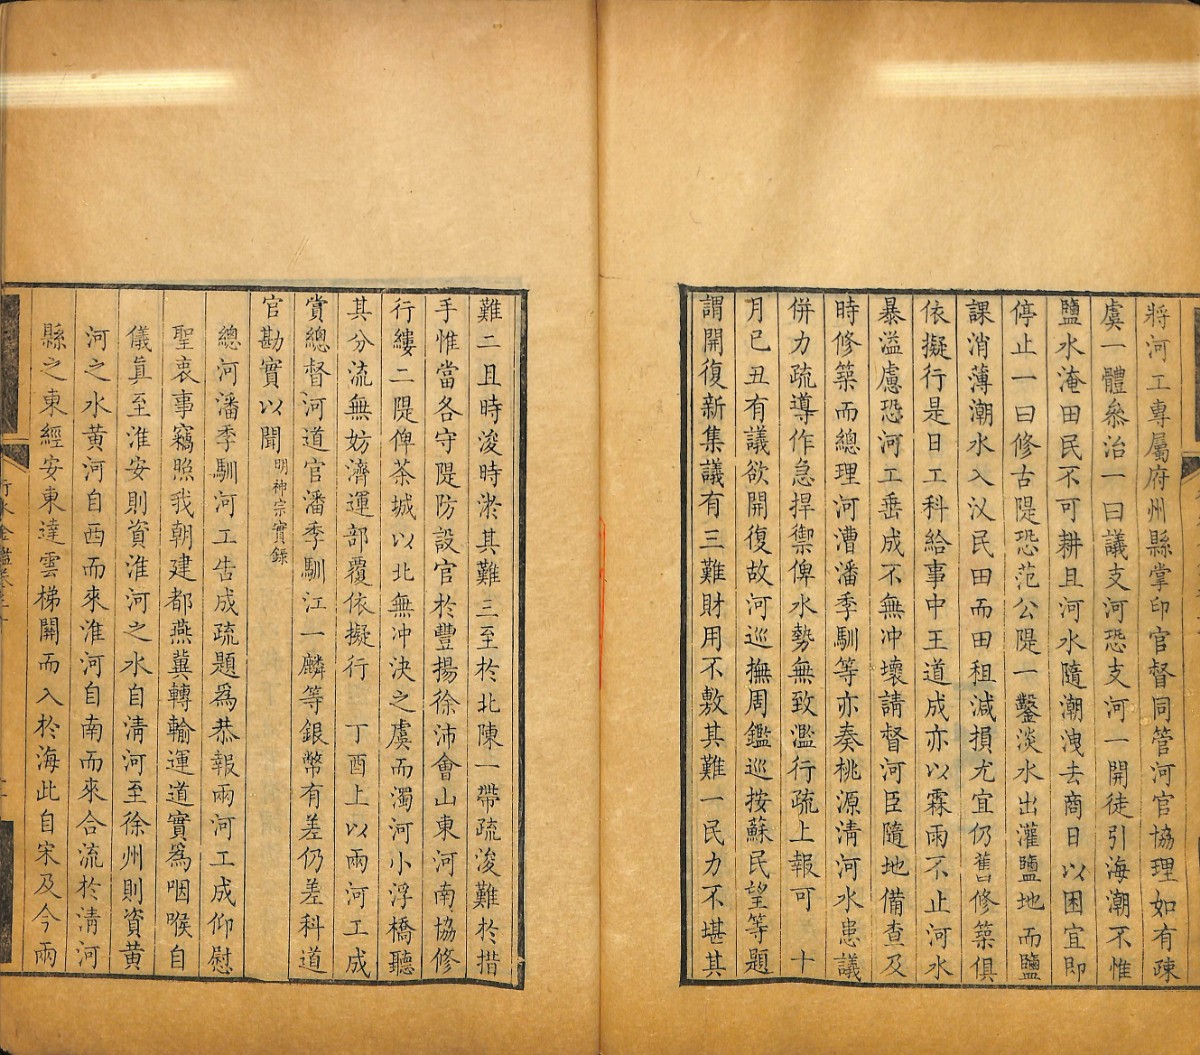 將河工專屬府州縣掌印官督同管河官協理如有疎
虞一體叅治一曰議支河恐支河一開徒引海潮不惟
鹽水淹田民不可耕且河水隨潮洩去商日以困宜即
停止一曰修古隄恐范公隄一鑿淡水出灌鹽地而鹽
課消薄潮水入汊民田而田租減損尤宜仍舊修築俱
依擬行是日工科給事中王道成亦以霖雨不止河水
暴溢慮恐河工垂成不無冲壞請督河臣隨地備查及
時修築而總理河漕潘季馴等亦奏桃源清河水患議
併力疏導作急捍禦俾水勢無致濫行疏上報可　十
月已丑有議欲開復故河巡撫周鑑巡按蘇民望等題
謂開復新集議有三難財用不敷其難一民力不堪其
難二且時浚時淤其難三至於北陳一帶疏浚難於措
手惟當各守隄防設官於豐揚徐沛會山東河南協修
行縷二隄俾茶城以北無冲決之虞而濁河小浮橋聽
其分流無妨濟運部覆依擬行　丁酉上以兩河工成
賞總督河道官潘季馴江一麟等銀幣有差仍差科道
官勘實以聞明神宗實錄
總河潘季馴河工告成疏題爲恭報兩河工成仰慰
聖衷事竊照我朝建都燕冀轉輸運道實爲咽喉自
儀真至淮安則資淮河之水自清河至徐州則資黄
河之水黄河自西而來淮河自南而來合流於清河
縣之東經安東達雲梯關而入於海此自宋及今兩